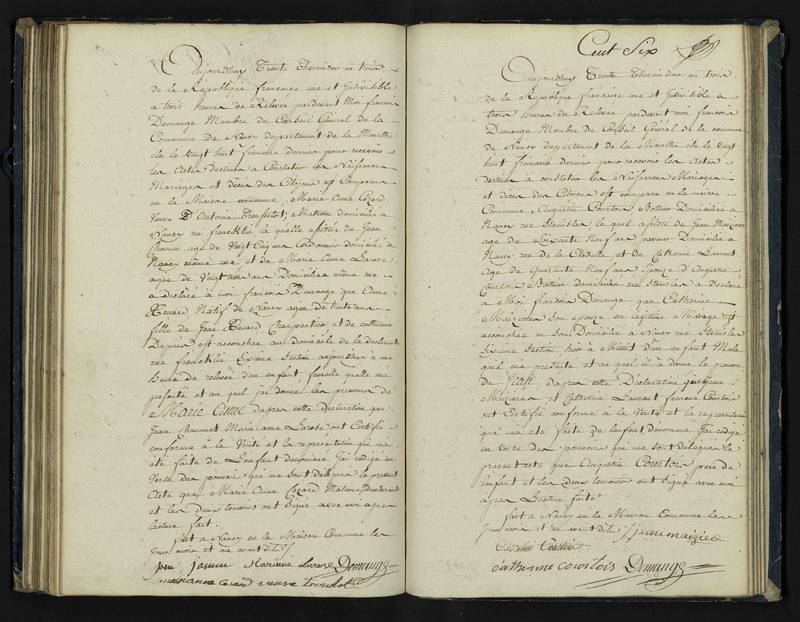 Aujourdhuy Trente Thermidor an trois
de la République française une et Indivisible
a trois heures de Relevée pardevant Moi françois
Demange Membre du Conseil Général de la
Commune de Nancy departement de la Meurthe
elu le Vingt huit frimaire dernier pour recevoir
les actes destinés a Constater les Naissances
Mariages et décès des Citoyens est Comparue
en la Maison commune, Marie Anne Cezard
Veuve Matrone domiciliée a
Nancy rue francklin, la quelle assistée de Jean
agé de Vingt Cordonnier domicilié à
Nancy même rue et de Marie Anne Larose
agée de Vingt trois ans Domiciliée même rue
a déclaré à moi françois Demange que Anne
Rouard Native de Nancy agée de trente ans
fille de Jean Rouard Charpentier, et de catherine
Dupuis est accouchée au domicile de la declarante
rue francklin Sixieme Section aujourdhui à une
heure de relevée d'un enfant femelle qu'elle ma
présenté et au quel j'ai donné les prenoms de
Marie Anne d'apres cette déclaration que
Jean Marie anne Larose ont Certifié
conforme à la Vérité et la représentation qui ma
été faite de L'enfant dénommé J'ai rédigé en
Vertu des pouvoirs qui me sont délégués le présent
acte que Marie Anne Cezard Matrone, declarante
et les deux temoins ont signé avec moi apres
lecture fait.
fait a Nancy en la Maison Commune les
Jour mois et an avant dits
Marianne Larose Demange
marianne cezard veuve
Cent Six
Aujourdhuy Trente Thermidor an trois
de la République française une et Indivisible a
trois heures de Relevée pardevant moi françois
Demange Membre du Conseil Général de la commune
de Nancy departement de la Meurthe elu le Vingt
huit frimaire dernier pour recevoir les Actes
destinés à constater les Naissances Mariages
et décès des Citoyens est comparu en la maison
Commune, Augustin Courtois Bottier Domicilié a
Nancy rue Stanislas, le quel assisté de Jean Maizieres
age de Soixante Neuf ans Domicilié a
Nancy rue de la Citadelle et de Catherine Laurent
Agée de Quarante Neuf ans Epouse d'Augustin
Courtois Bottier domiciliée rue Stanislas a Déclaré
a Moi françois Demange que Catherine
Maizieres son epouse en légitime Mariage est
accouchée en son Domicile a Nancy rue Stanislas
Sixieme Section hier à Minuit d'un enfant Male
qu'il ma présenté et au quel il a donné le prenom
de Jean d'apres cette Déclaration que Jean
Maizieres et Catherine Laurent femme Courtois
ont Certifié conforme à la Verité et la représentation
qui ma été faite de l'enfant dénommé J'ai rédigé
en Vertu des pouvoirs qui me sont délégués le
présent acte que Augustin Courtois père de
l'enfant et les deux temoins ont signé avec moi
apres Lecture faite
fait a Nancy en la Maison Commune les
Jour mois et an avant dits jean maiziere
Courtois
Catherine courtois Demange